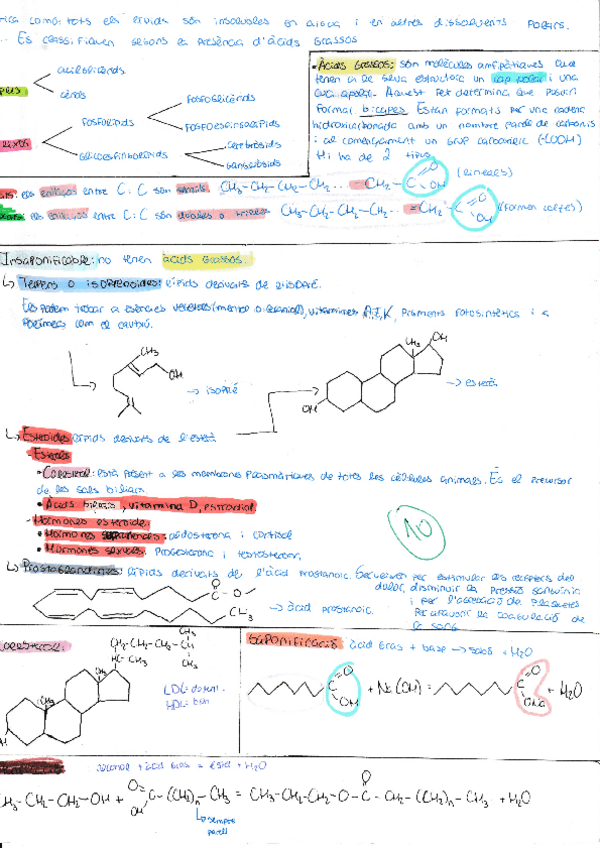 com a tots els lípids són insolubles en aigua i en altres dissolvents polars.
Es classifiquen segons la presència d'àcids grassos
acilglicèrids
cèrids
fosfolípids
fosfoglicèrids
fosfoesfingolípids
glicoesfingolípids
cerebròsids
gangliòsids
• Àcids grassos: són molècules amfipàtiques que
tenen a la seva estructura un cap polar i una
cua apolar. Aquest fet determina que puguin
formar bicapes. Estan formats per una cadena
hidrocarbonada amb un nombre parell de carbonis
i al començament un grup carboxílic (-COOH)
Hi ha de 2 tipus
els enllaços entre C:C són CH3-CH2-CH2-CH2... -CH2-C=O OH (lineals)
els enllaços entre C:C són dobles o triples CH3-CH2-CH2-CH2- =CH2 C=O OH (formen colzes)
Insaponificable: no tenen àcids grassos.
↳ Terpens o isoprenoides: lípids derivats de l'isoprè.
Els podem trobar a essències vegetals (mentol o geraniol), vitamines A, E, K, pigments fotosintètics i a
polímers com el cautxú.
CH3
OH
→ isoprè
CH3
OH
OH
→ esterà
↳ Esteroides lípids derivats de l'esterà
- Esterols
• Colesterol: està present a les membranes plasmàtiques de totes les cèl·lules animals. És el precursor
de les sals biliars.
• Àcids biliars, vitamina D, estradiol
- Hormones esteroide.
• Hormones suprarenals: aldosterona i cortisol
• Hormones sexuals: Progesterona i testosterona
10
↳ Prostaglandines: lípids derivats de l'àcid prostanoic. Serveixen per estimular els receptors del
dolor, disminuir la pressió sanguínia
i per l'agregació de plaquetes
per afavorir la coagulació de
la sang
O
C-O-
CH3
→ àcid prostanoic.
Colesterol:
CH3
CH2-CH2-CH2-CH
CH3
HC-CH3
CH3
LDL = dolent.
HDL = bon
Saponificació: àcid gras + base → sabó + H2O
C=O OH + Na(OH) = C=O ONa + H2O
alcohol + àcid gras = èster + H2O
CH3-CH2-CH2-OH + O=C-(CH2)n-CH3 = CH3-CH2-CH2-O-C-CH2-(CH2)n-CH3 + H2O
OH
O
↳ sempre
parell